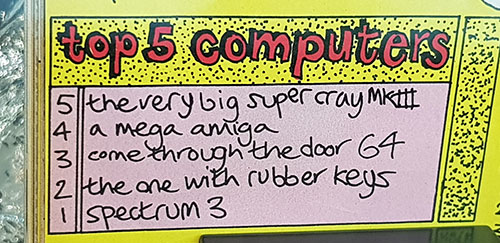 top 5 computers
5 the very big super cray MKIII
4 a mega amiga
3 come through the door 64
2 the one with rubber keys
1 spectrum 3